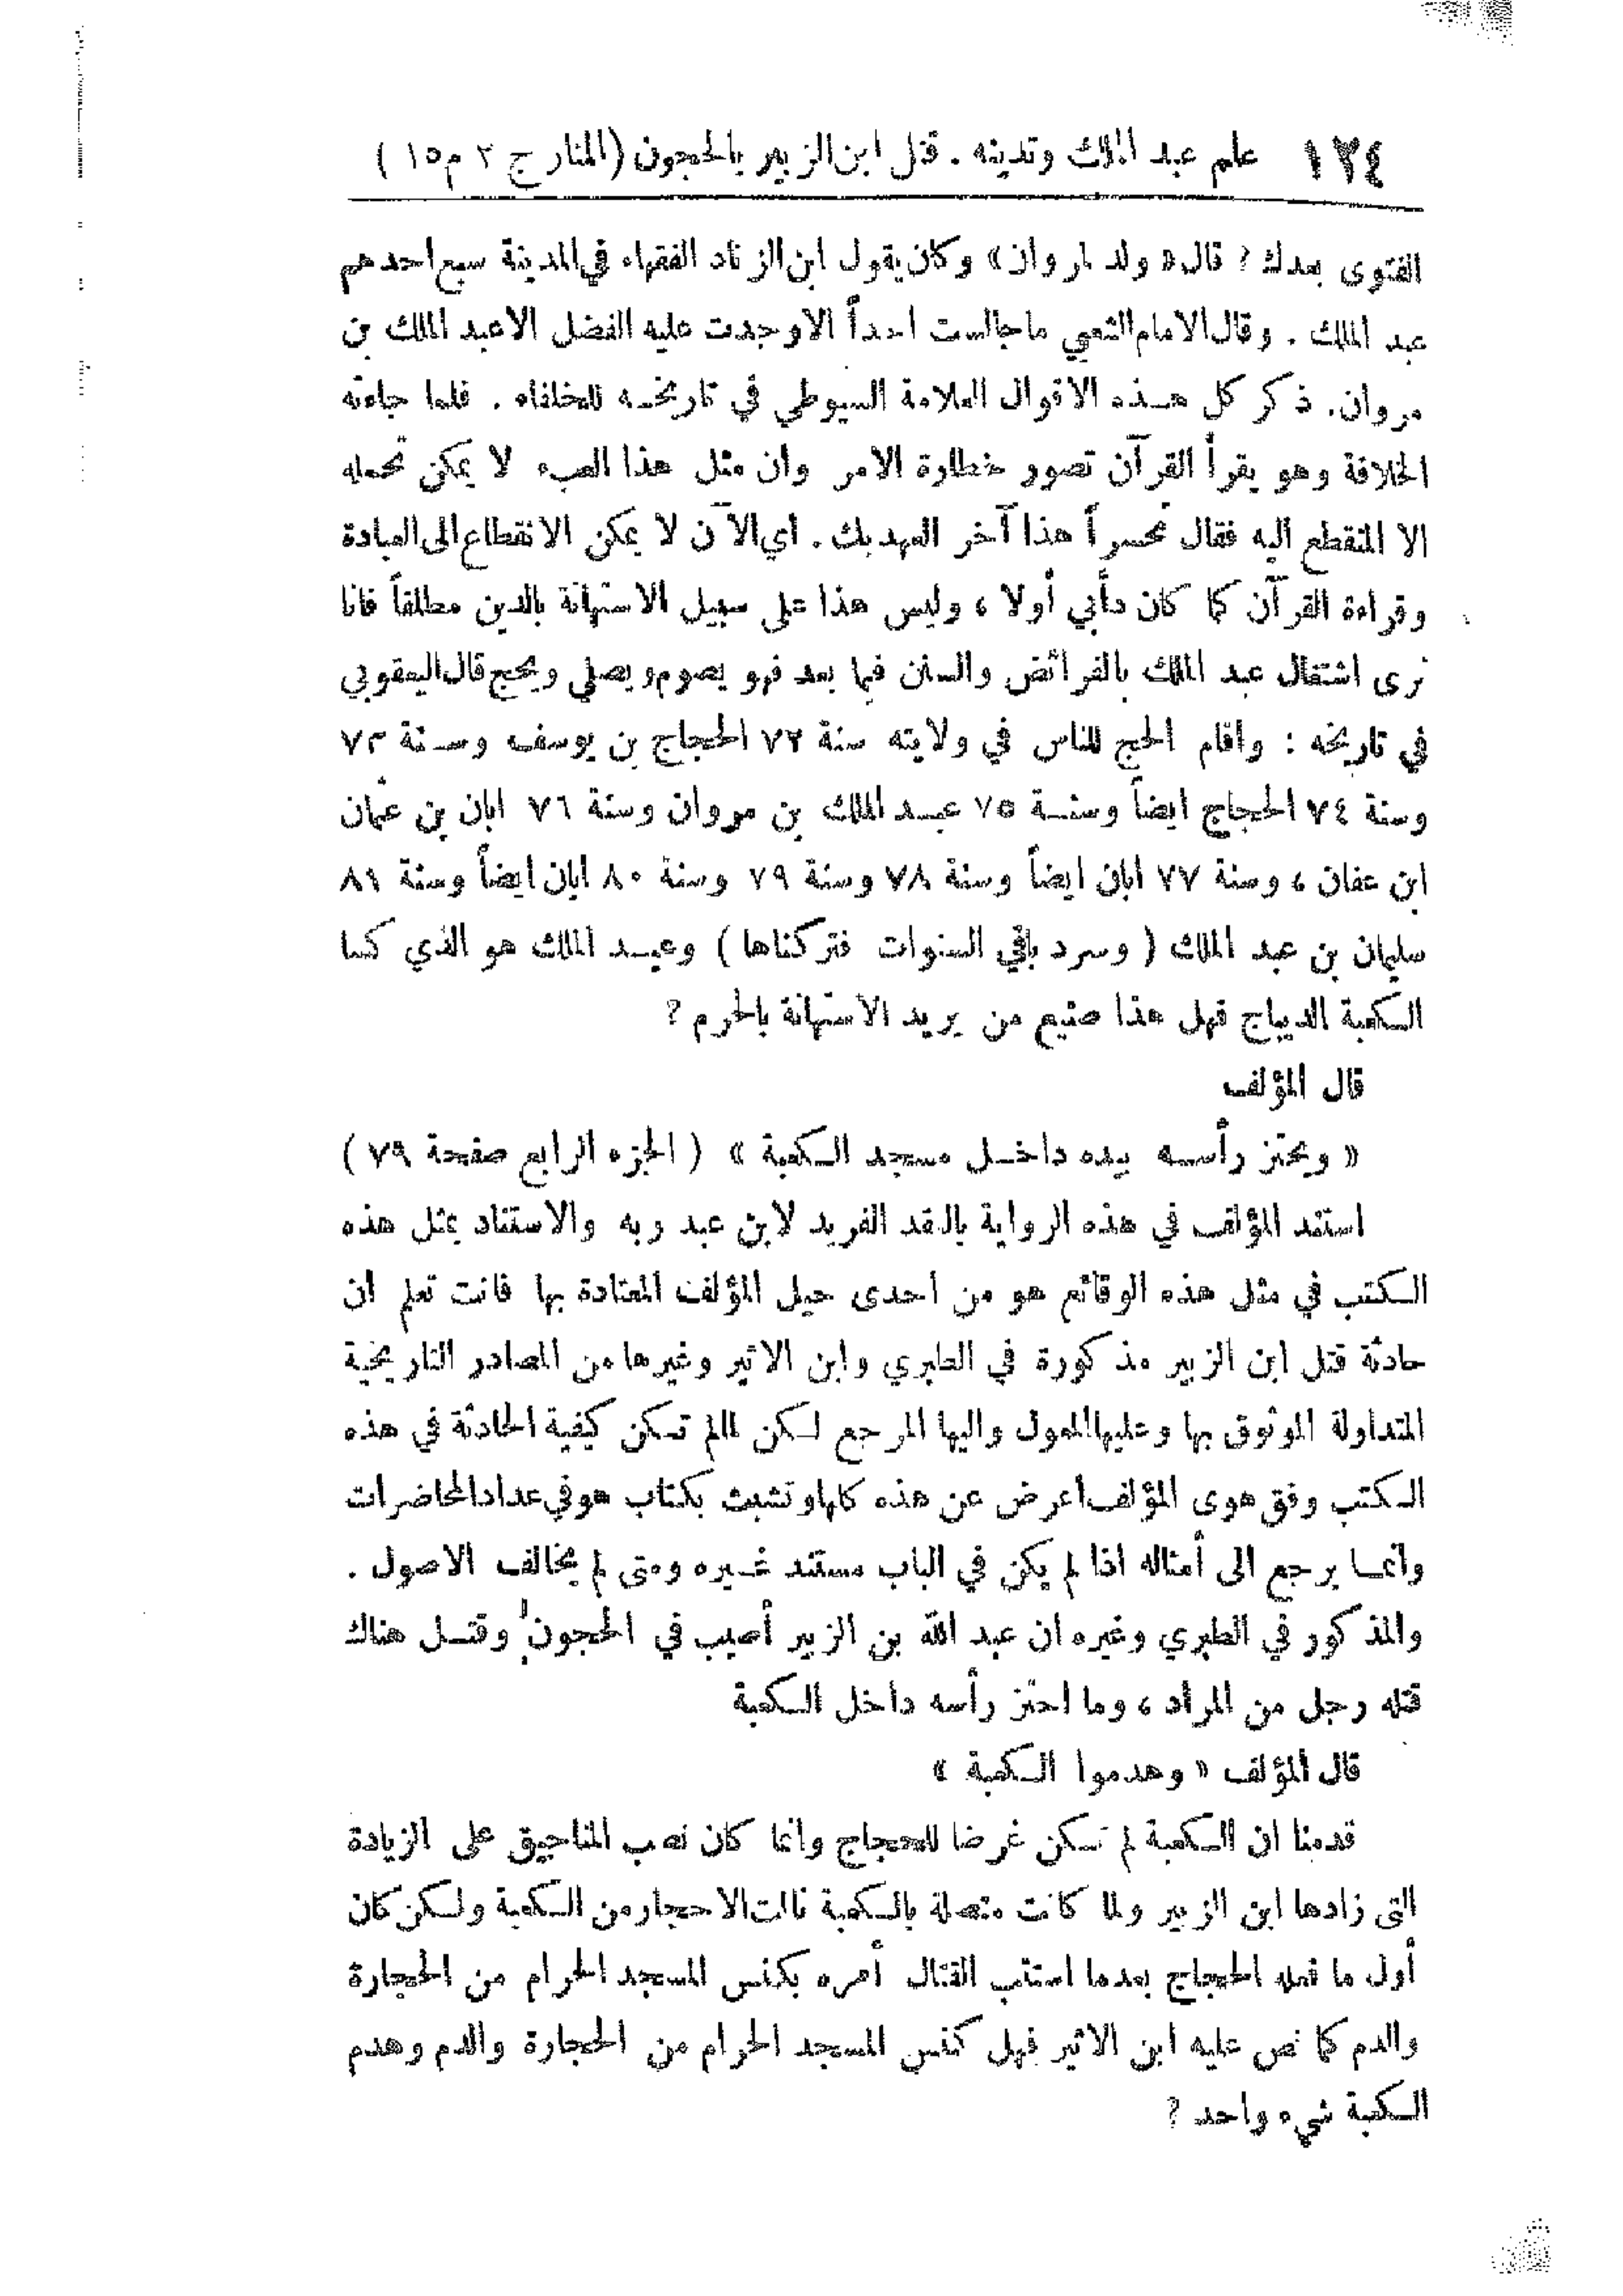 ١٢٤ علم عبد الملك وتدينه . قتل ابن الزبير بالحجون (المنار ج ٢ م ١٥ )
الفتوى بعدك ؟ قال « ولد لمروان » وكان يقول ابن الزناد الفقهاء في المدينة سبع احدهم
عبد الملك . وقال الامام الشعبي ما جالست احداً الا وجدت عليه الفضل الا عبد الملك بن
مروان. ذكر كل هذه الاقوال العلامة السيوطي في تاريخه للخلفاء . فلما جاءته
الخلافة وهو يقرأ القرآن تصور خطارة الامر وان مثل هذا العبء لا يمكن تحمله
الا المنقطع اليه فقال تحسراً هذا آخر العهد بك . اي الآن لا يمكن الانقطاع الى العبادة
وقراءة القرآن كما كان دأبي أولا ، وليس هذا على سبيل الاستهانة بالدين مطلقاً فانا
نرى اشتغال عبد الملك بالفرائض والسنن فيما بعد فهو يصوم ويصلي ويحج قال اليعقوبي
في تاريخه : واقام الحج للناس في ولايته سنة ٧٢ الحجاج بن يوسف وسنة ٧٣
وسنة ٧٤ الحجاج ايضاً وسنة ٧٥ عبد الملك بن مروان وسنة ٧٦ ابان بن عثمان
ابن عفان ، وسنة ٧٧ ابان ايضاً وسنة ٧٨ وسنة ٧٩ وسنة ٨٠ ابان ايضاً وسنة ٨١
سليمان بن عبد الملك ( وسرد باقي السنوات فتركناها ) وعبد الملك هو الذي كسا
الكعبة الديباج فهل هذا صنيع من يريد الاستهانة بالحرم ؟
قال المؤلف
« ويحتز رأسه بيده داخل مسجد الكعبة » ( الجزء الرابع صفحة ٧٩ )
استند المؤلف في هذه الرواية بالعقد الفريد لابن عبد ربه والاستناد بمثل هذه
الكتب في مثل هذه الوقائع هو من احدى حيل المؤلف المعتادة بها فانت تعلم ان
حادثة قتل ابن الزبير مذكورة في الطبري وابن الاثير وغيرها من المصادر التاريخية
المتداولة الموثوق بها وعليها المعول واليها المرجع لكن لما لم تكن كيفية الحادثة في هذه
الكتب وفق هوى المؤلف أعرض عن هذه كلها وتشبث بكتاب هو في عداد المحاضرات
وانما يرجع الى أمثاله اذا لم يكن في الباب مستند غيره ومتى لم يخالف الاصول .
والمذكور في الطبري وغيره ان عبد الله بن الزبير أصيب في الحجون وقتل هناك
قتله رجل من المراد ، وما احتز رأسه داخل الكعبة
قال المؤلف « وهدموا الكعبة »
قدمنا ان الكعبة لم تكن غرضا للحجاج وانما كان نصب المناجيق على الزيادة
التى زادها ابن الزبير ولما كانت متصلة بالكعبة نالت الاحجار من الكعبة ولكن كان
أول ما فعله الحجاج بعدما استتب القتال أمره بكنس المسجد الحرام من الحجارة
والدم كما نص عليه ابن الاثير فهل كنس المسجد الحرام من الحجارة والدم وهدم
الكعبة شيء واحد ؟